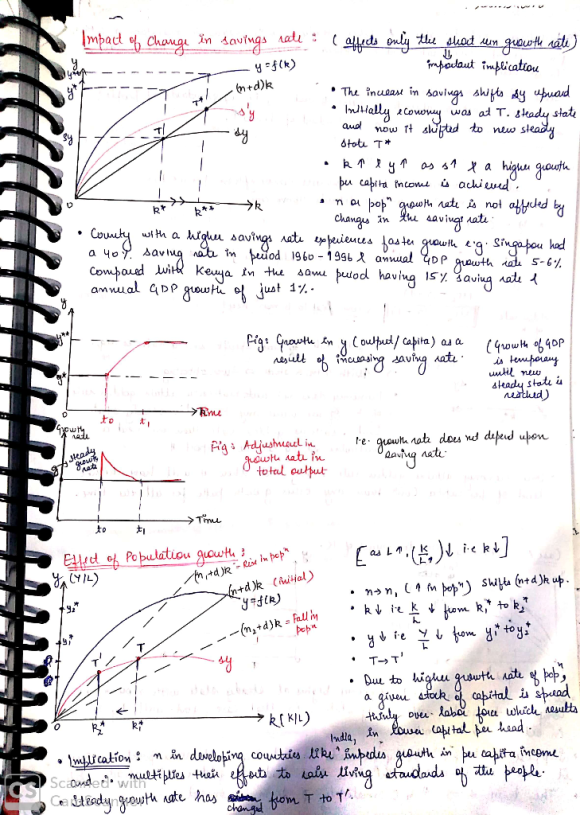 Impact of Change in savings rate : ( affects only the short run growth rate)
important implication
y
y**
y*
sy
y = f(k)
(n+d)k
s'y
sy
T*
T
0
k*
k**
k
• The increase in savings shifts sy upward
• Initially economy was at T. steady state
and now it shifted to new steady
state T*
• k ↑ & y ↑ as s↑ & a higher growth
per capita income is achieved.
• n or popⁿ growth rate is not affected by
changes in the savings rate.
• Country with a higher savings rate experiences faster growth e.g. Singapou had
a 40% saving rate in period 1960-1996 & annual GDP growth rate 5-6%
compared with Kenya in the same period having 15% saving rate &
annual GDP growth of just 1%.
y
y**
y*
0
t0
t1
Time
Fig: Growth in y (output/capita) as a
result of increasing saving rate.
(Growth of GDP
is temporary
until new
steady state is
reached)
Growth
rate
steady
growth
rate
t0
t1
Time
Fig: Adjustment in
growth rate in
total output
i.e. growth rate does not depend upon
saving rate.
Effect of Population growth :
[ as L↑, (K/L↑)↓ i.e k↓]
y (Y/L)
(n1+d)k - Rise in popⁿ
(n+d)k (initial)
y = f(k)
(n2+d)k = Fall in
popⁿ
sy
y2*
y1*
T'
T
0
k2*
k1*
k [K/L]
• n→n1 (↑ in popⁿ) shifts (n+d)k up.
• k↓ i.e K/L ↓ from k1* to k2*
• y↓ i.e Y/L ↓ from y1* to y2*
• T→T'
• Due to higher growth rate of popⁿ,
a given stock of capital is spread
thinly over labor force which results
in lower capital per head.
• Implication : n in developing countries like India, impedes growth in per capita income
and multiplies their efforts to raise living standards of the people.
• Steady growth rate has changed from T to T'.
CS
Scanned with
CamScanner